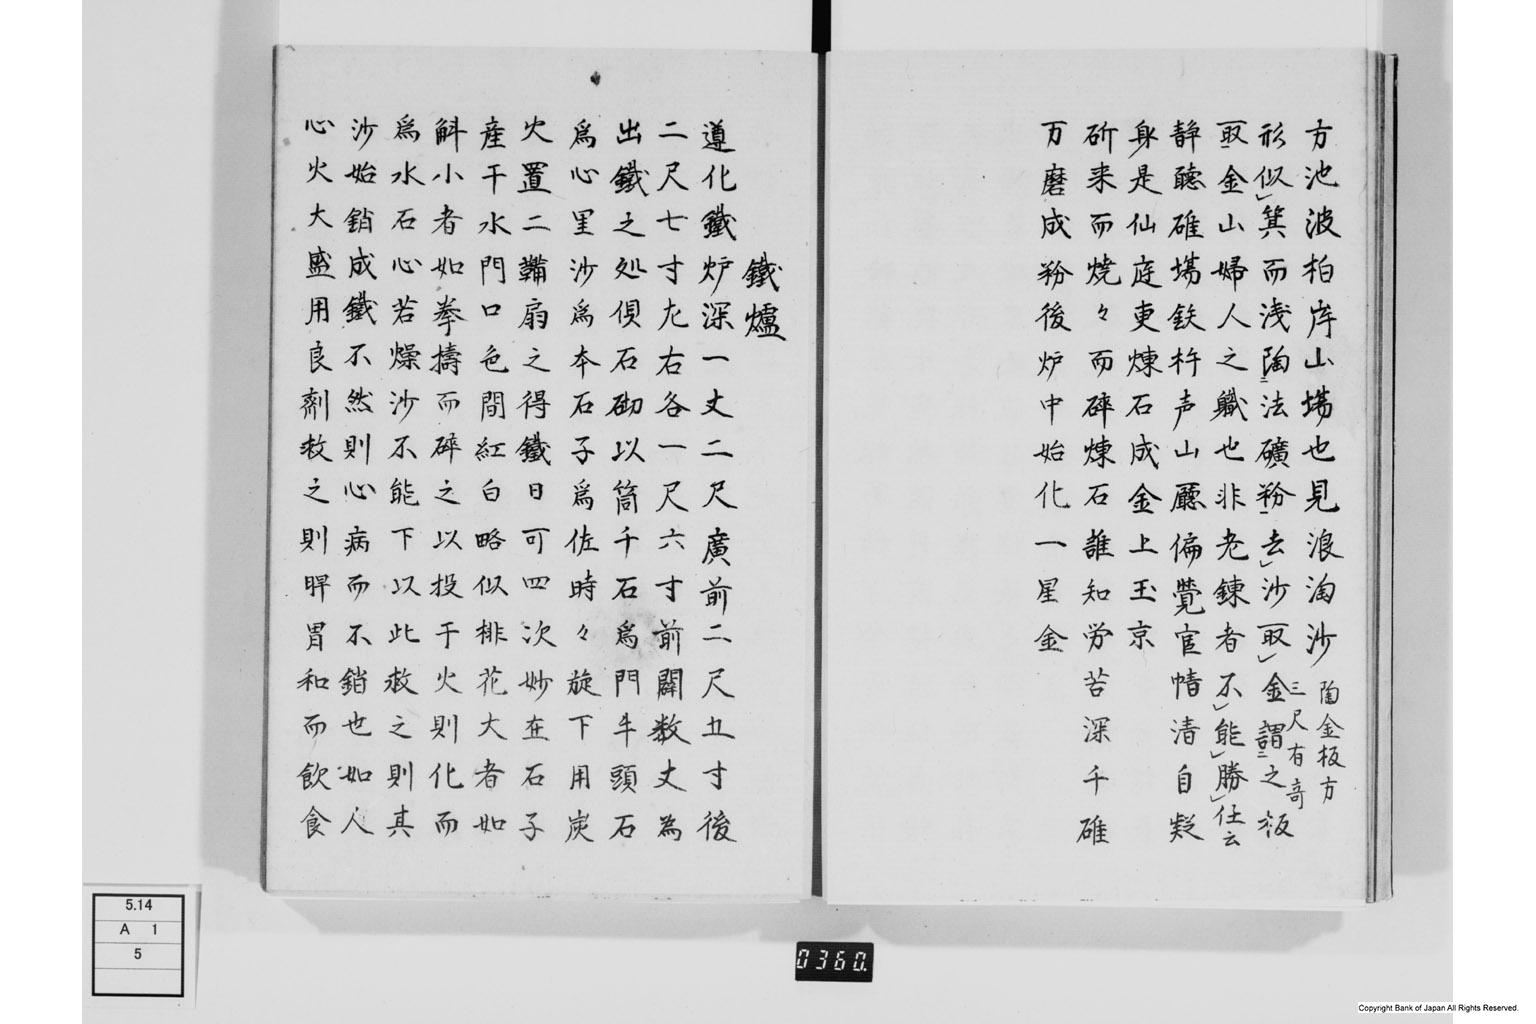 方池波柏庤山場也見浪淘沙陶金板方
三尺有奇
形似箕而淺陶法礦粉去沙取金謂之板
取金山婦人之職也非老鍊者不能勝仕云
靜聽碓場鉄杵声山廳偏覺官情清自疑
身是仙庭吏煉石成金上玉京
斫来而燒々而砕煉石誰知労苦深千碓
万磨成粉後炉中始化一星金
鐵爐
遵化鐵炉深一丈二尺廣前二尺五寸後
二尺七寸左右各一尺六寸前闢数丈為
出鐵之処俱石砌以筒千石爲門牛頭石
爲心里沙爲本石子爲佐時々旋下用炭
火置二鞴扇之得鐵日可四次妙在石子
産干水門口色間紅白略似桃花大者如
斛小者如拳擣而碎之以投于火則化而
爲水石心若燥沙不能下以此救之則其
沙始銷成鐵不然則心病而不銷也如人
心火大盛用良剤救之則脾胃和而飲食
5.14
A 1
5
0360.
Copyright Bank of Japan All Rights Reserved.